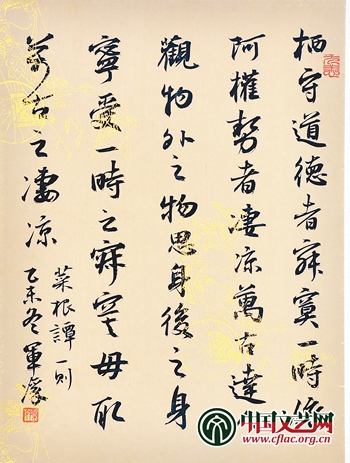 栖守道德者寂寞一時依
阿權勢者淒涼萬古達
觀物外之物思身後之身
寧受一時之寂寞毋取
萬古之淒涼
菜根譚一則
乙未冬軍
中国文艺网
www.cflac.org.cn